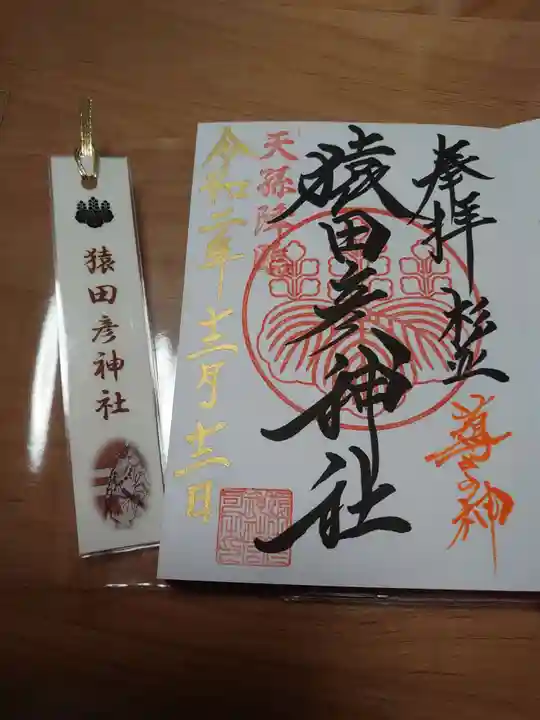 奉拝 杉並
導きの神
猿田彦神社
天孫降臨
令和二年十二月十二日
猿田彦神社